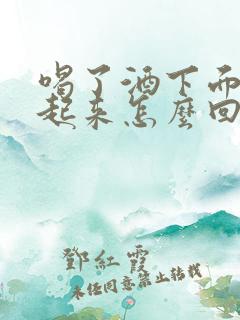 喝了酒下面
起来怎麼回
鄧紅霞
未經同意禁止轉載